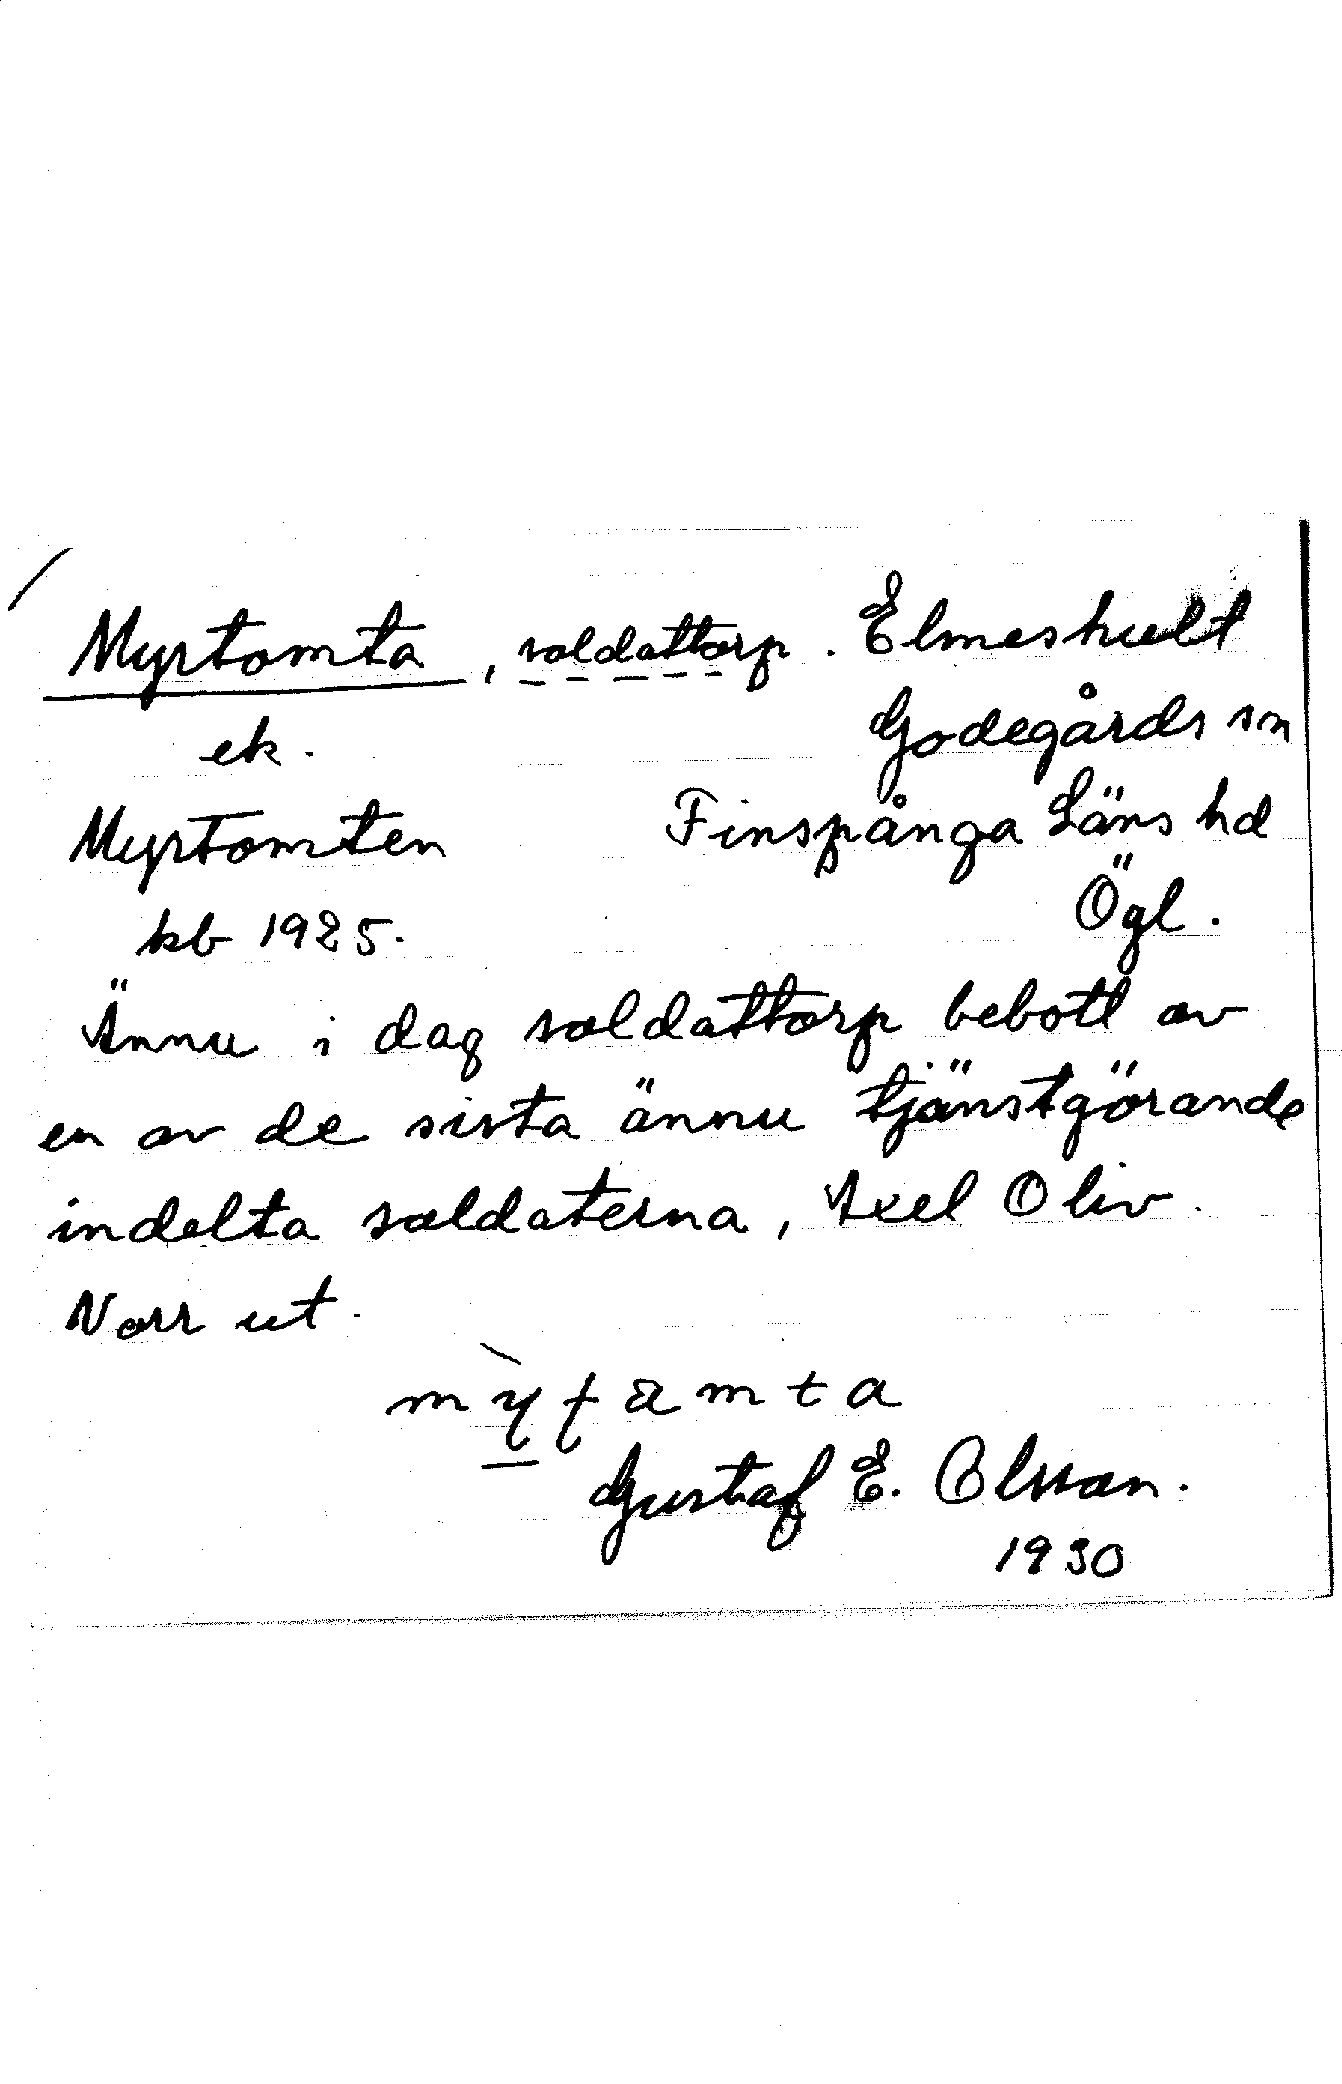 Myrtomta, soldattorp. Elmeshult
ek. Godegårds sn
Myrtomten Finspånga Läns hd
kb 1925. Ögl.
Ännu i dag soldattorp bebott av
en av de sista ännu tjänstgörande
indelta soldaterna, Axel Oliv.
Norr ut.
Gustaf E. Olsson.
1930